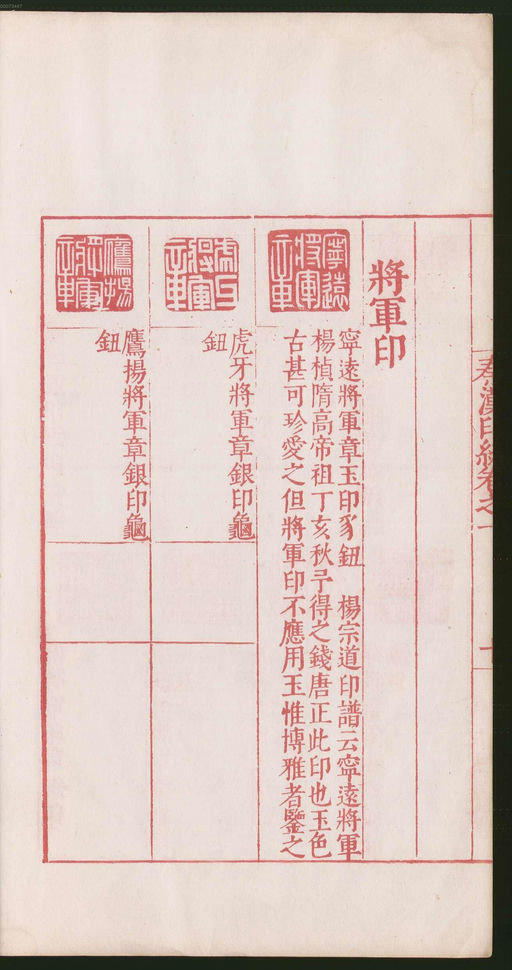 將軍印
寧遠將軍章
寧遠將軍章玉印豸鈕 楊宗道印譜云寧遠將軍
楊楨隋高帝祖丁亥秋予得之錢唐正此印也玉色
古甚可珍愛之但將軍印不應用玉惟博雅者鑒之
虎牙將軍章
虎牙將軍章銀印龜
鈕
鷹揚將軍章
鷹揚將軍章銀印龜
鈕
00073447